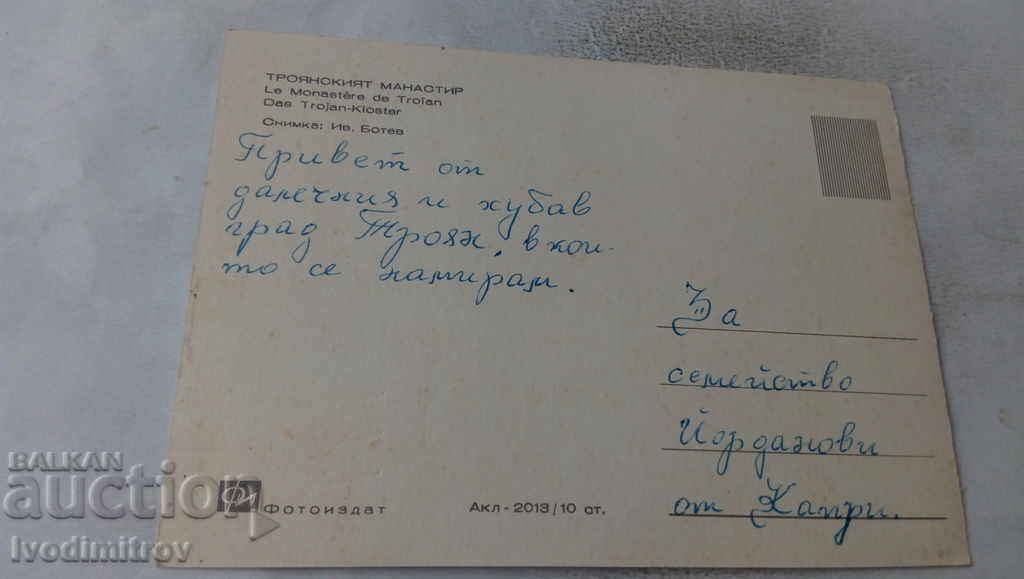 ТРОЯНСКИЯТ МАНАСТИР
Le Monastère de Troïan
Das Trojan-Kloster
Снимка: Ив. Ботев
Привет от
далечния и хубав
град Троян, в кои-
то се намирам.
За
семейство
Йорданови
от Капри.
Фотоиздат
Акл-2013/10 ст.
BALKAN
auction
Ivodimitrov